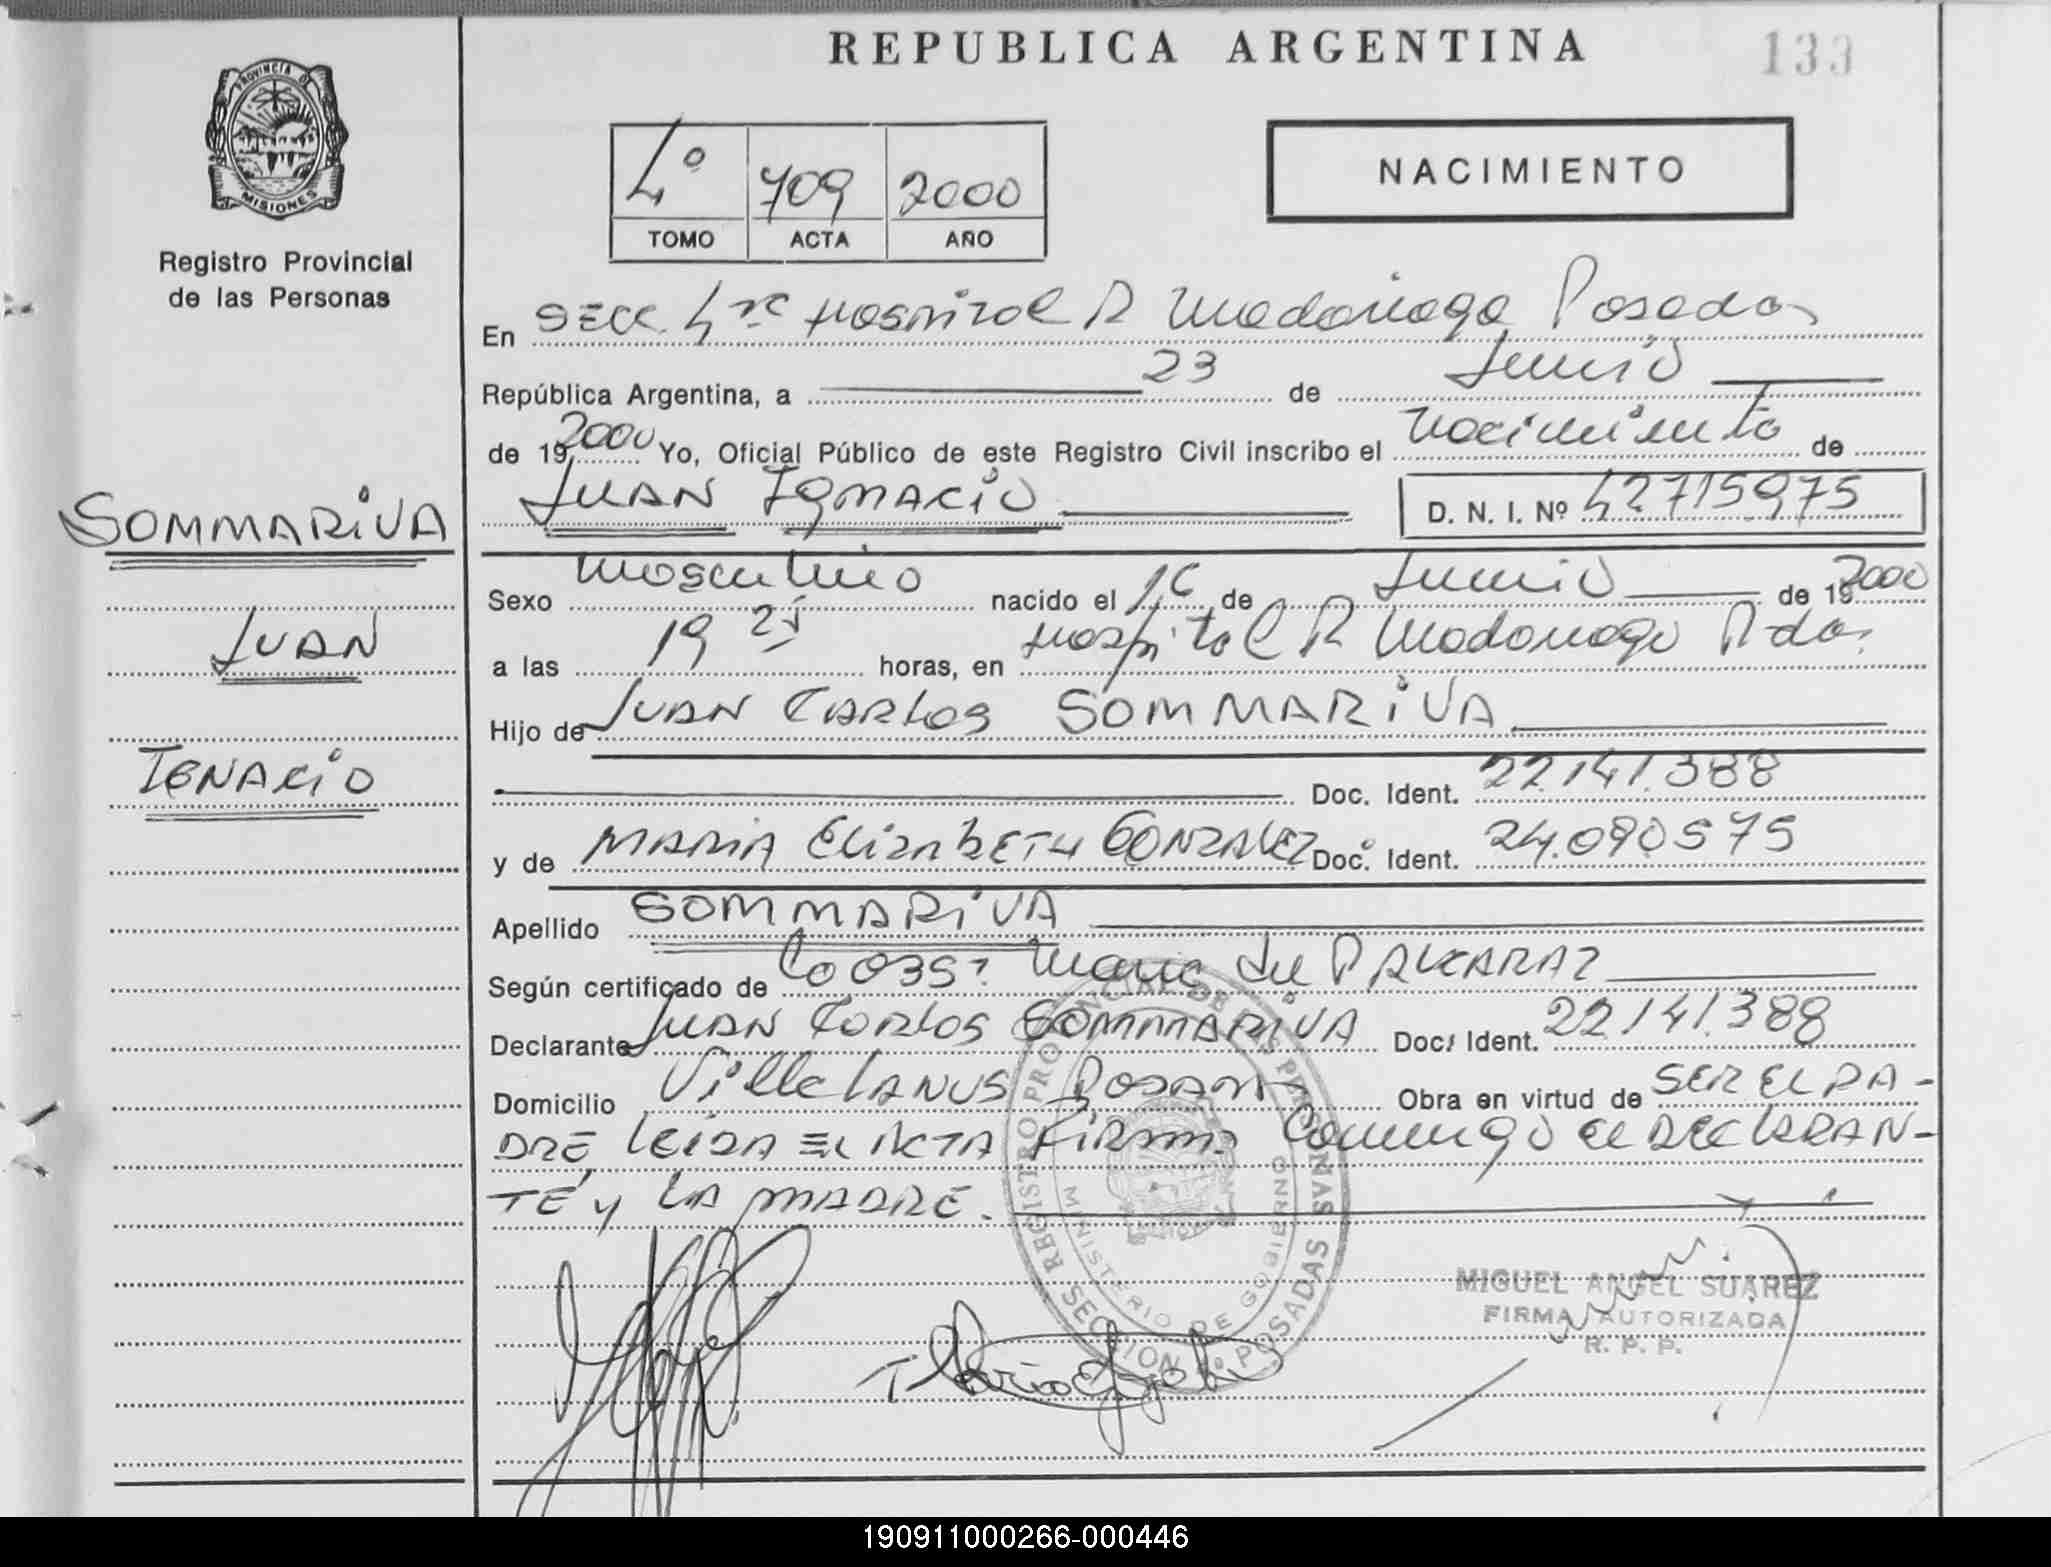 REPUBLICA ARGENTINA
133
PROVINCIA DE MISIONES
Registro Provincial
de las Personas
4º 709 2000
TOMO ACTA AÑO
NACIMIENTO
En SECC. 4ta Hospital R Madariaga Posadas
República Argentina, a 23 de Junio
de 19 2000 Yo, Oficial Público de este Registro Civil inscribo el nacimiento de
JUAN IGNACIO
D. N. I. Nº 42715975
SOMMARIVA
JUAN
IGNACIO
Sexo masculino nacido el 16 de Junio de 19 2000
a las 19 25 horas, en Hospital R Madariaga Pdas.
Hijo de JUAN CARLOS SOMMARIVA
Doc. Ident. 22.141.388
y de MARIA ELIZABETH GONZALEZ Doc. Ident. 24.090575
Apellido SOMMARIVA
Según certificado de Co 035 Maria ALCARAZ
Declarante JUAN CARLOS SOMMARIVA Doc. Ident. 22.141.388
Domicilio Villa LANUS Posadas Obra en virtud de SER EL PA-
DRE, LEIDA EL ACTA FIRMA Conmigo el DECLARAN-
TE y LA MADRE.
REGISTRO PROVINCIAL DE LAS PERSONAS
MINISTERIO DE GOBIERNO
SECCION 4º POSADAS
MIGUEL ANGEL SUAREZ
FIRMA AUTORIZADA
R. P. P.
190911000266-000446